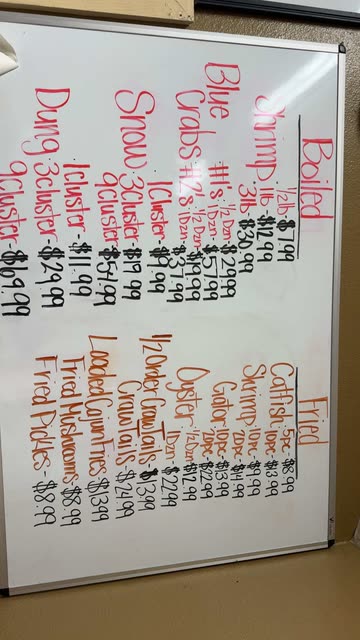 Boiled
Shrimp: 1/2lb $7.99
1lb $12.99
3lb $30.99
Blue #1's 1/2 Dzn $29.99
1Dzn $57.99
Crabs: #2's 1/2 Dzn $19.99
1Dzn $37.99
1Cluster-$9.99
Snow: 3cluster-$19.99
9cluster $54.99
1cluster $11.99
Dung: 3cluster-$29.99
9cluster-$69.99
Fried
Catfish: 5pc-$8.99
10pc $13.99
Shrimp: 10pc-$9.99
20pc-$14.99
Gator: 10pc-$13.99
20pc-$22.99
Oyster: 1/2Dzn $12.99
1Dzn-$22.99
1/2 Order CrawTails $13.99
CrawTails $24.99
Loaded Cajun Fries $13.99
Fried Mushrooms $8.99
Fried Pickles-$8.99